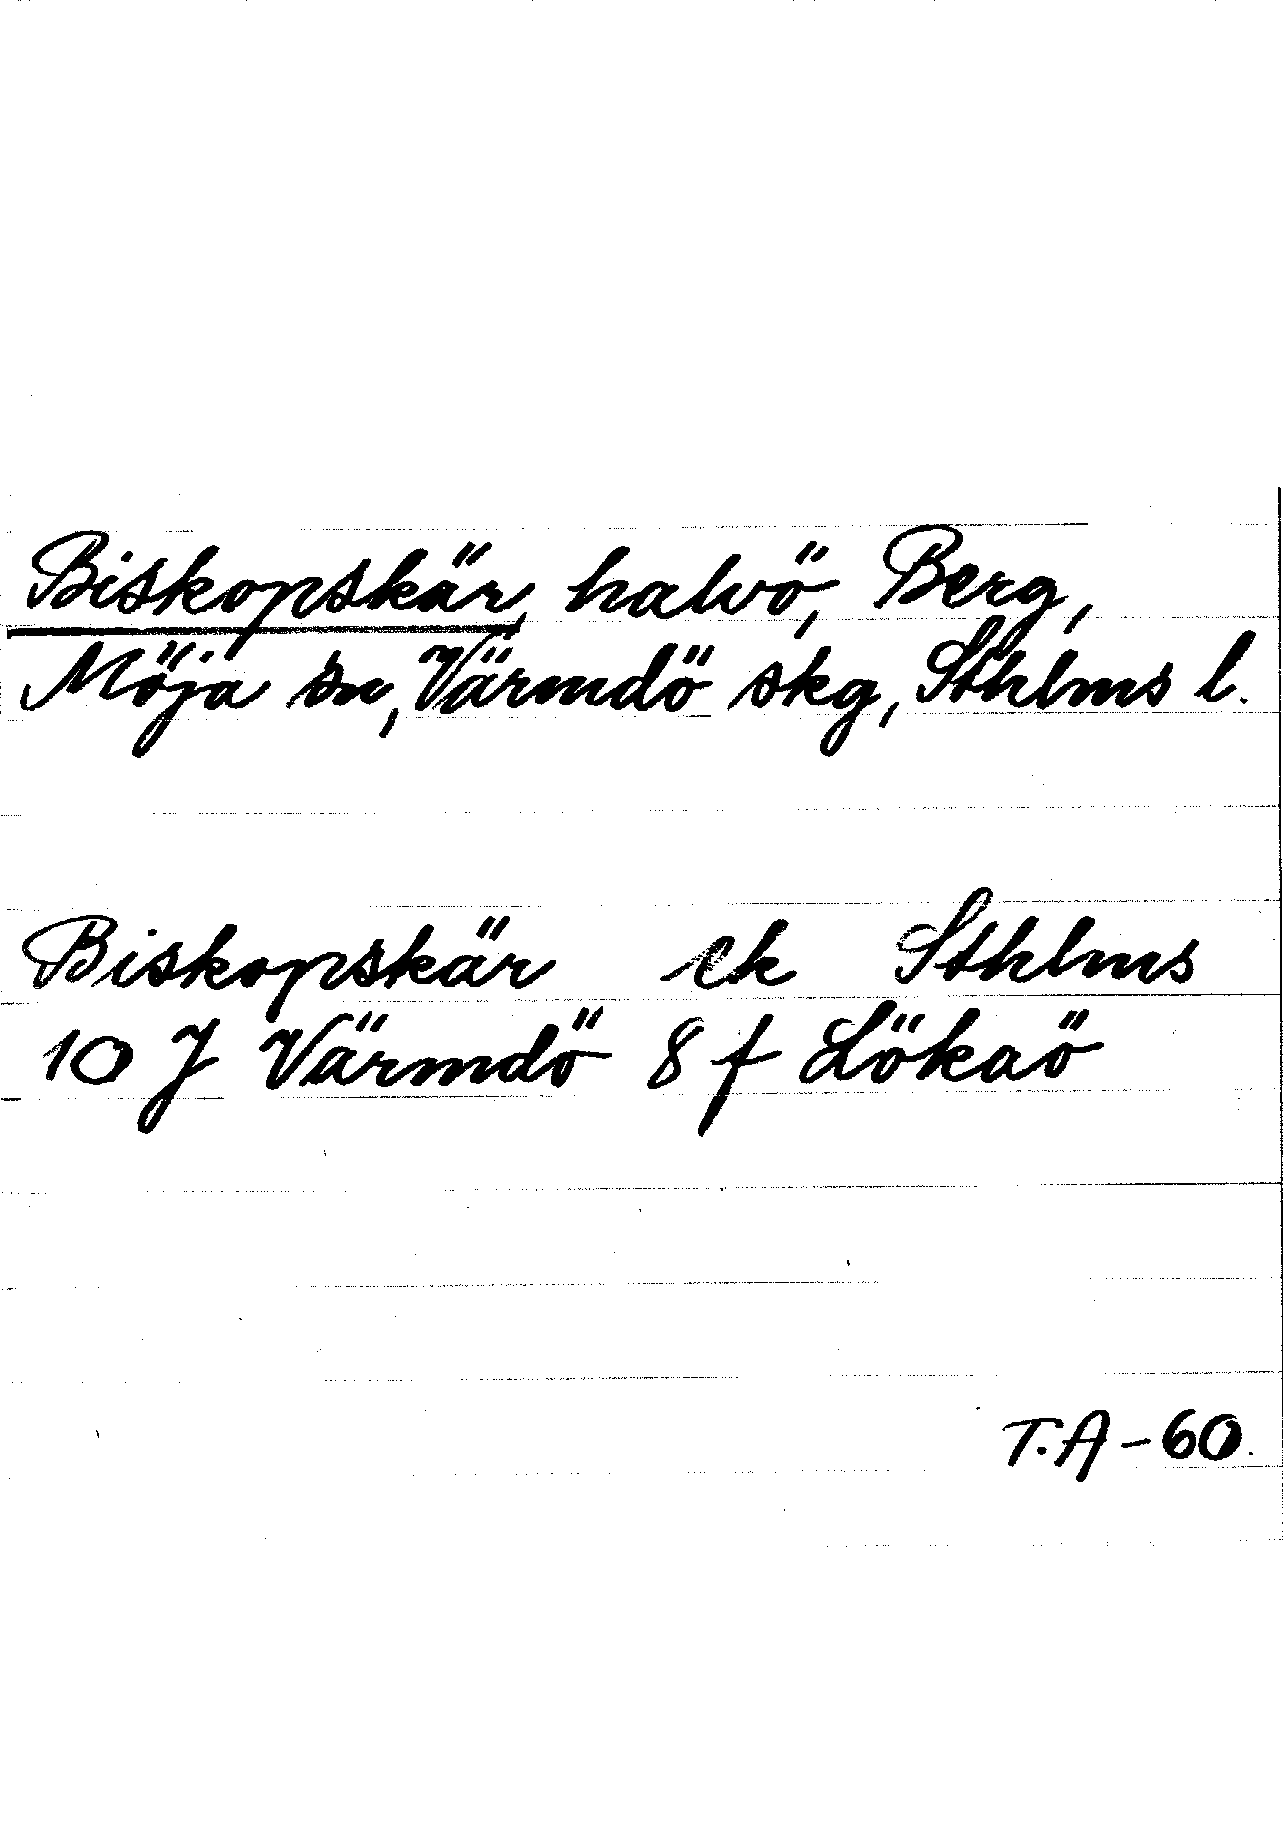 Biskopskär, halvö, Berg,
Möja sn, Värmdö skg, Sthlms l.
Biskopskär ek Sthlms
10 J Värmdö 8 f Lökaö
T.A-60.